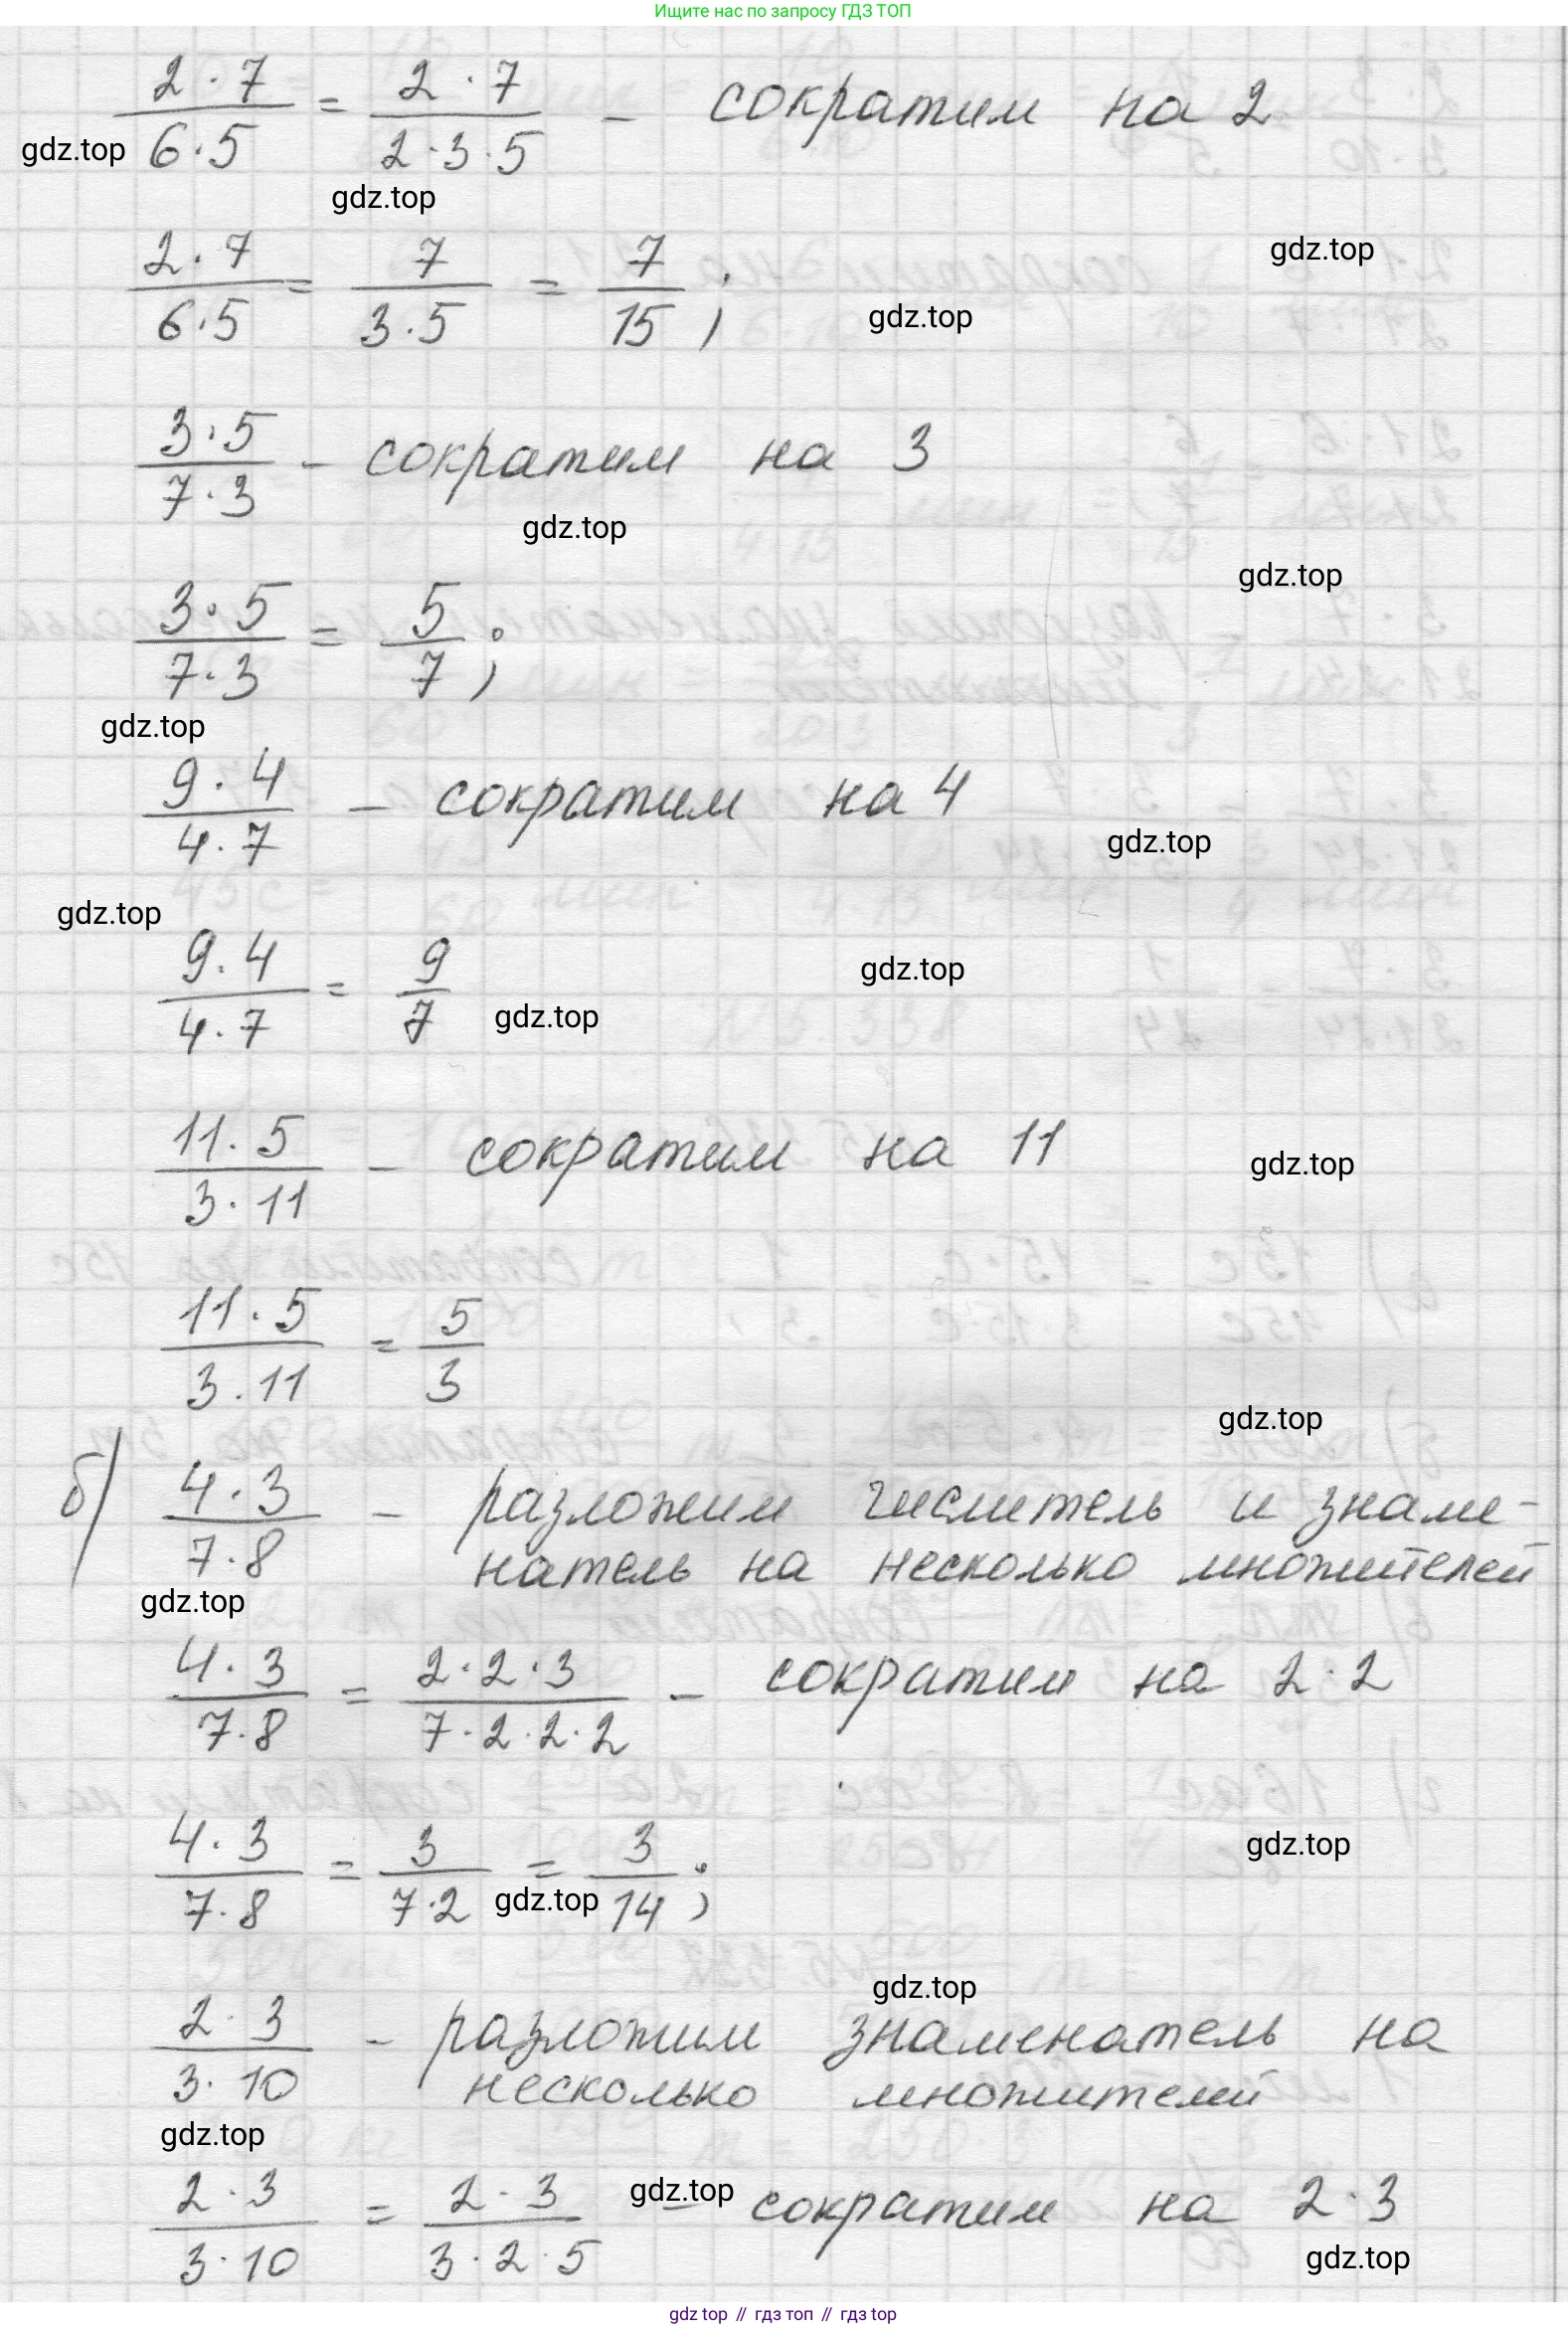 Ищите нас по запросу ГДЗ ТОП
2 · 7 / 6 · 5 = 2 · 7 / 2 · 3 · 5 – сократим на 2
gdz.top
gdz.top
2 · 7 / 6 · 5 = 7 / 3 · 5 = 7 / 15 ;
gdz.top
gdz.top
3 · 5 / 7 · 3 – сократим на 3
gdz.top
gdz.top
3 · 5 / 7 · 3 = 5 / 7 ;
gdz.top
9 · 4 / 4 · 7 – сократим на 4
gdz.top
gdz.top
9 · 4 / 4 · 7 = 9 / 7
gdz.top
gdz.top
11 · 5 / 3 · 11 – сократим на 11
gdz.top
11 · 5 / 3 · 11 = 5 / 3
gdz.top
б) 4 · 3 / 7 · 8 – разложим числитель и знаме-
натель на несколько множителей
gdz.top
4 · 3 / 7 · 8 = 2 · 2 · 3 / 7 · 2 · 2 · 2 – сократим на 2 · 2
4 · 3 / 7 · 8 = 3 / 7 · 2 = 3 / 14 ;
gdz.top
gdz.top
gdz.top
2 · 3 / 3 · 10 – разложим знаменатель на
несколько множителей
gdz.top
2 · 3 / 3 · 10 = 2 · 3 / 3 · 2 · 5 – сократим на 2 · 3
gdz.top
gdz.top
gdz top // гдз топ // гдз top